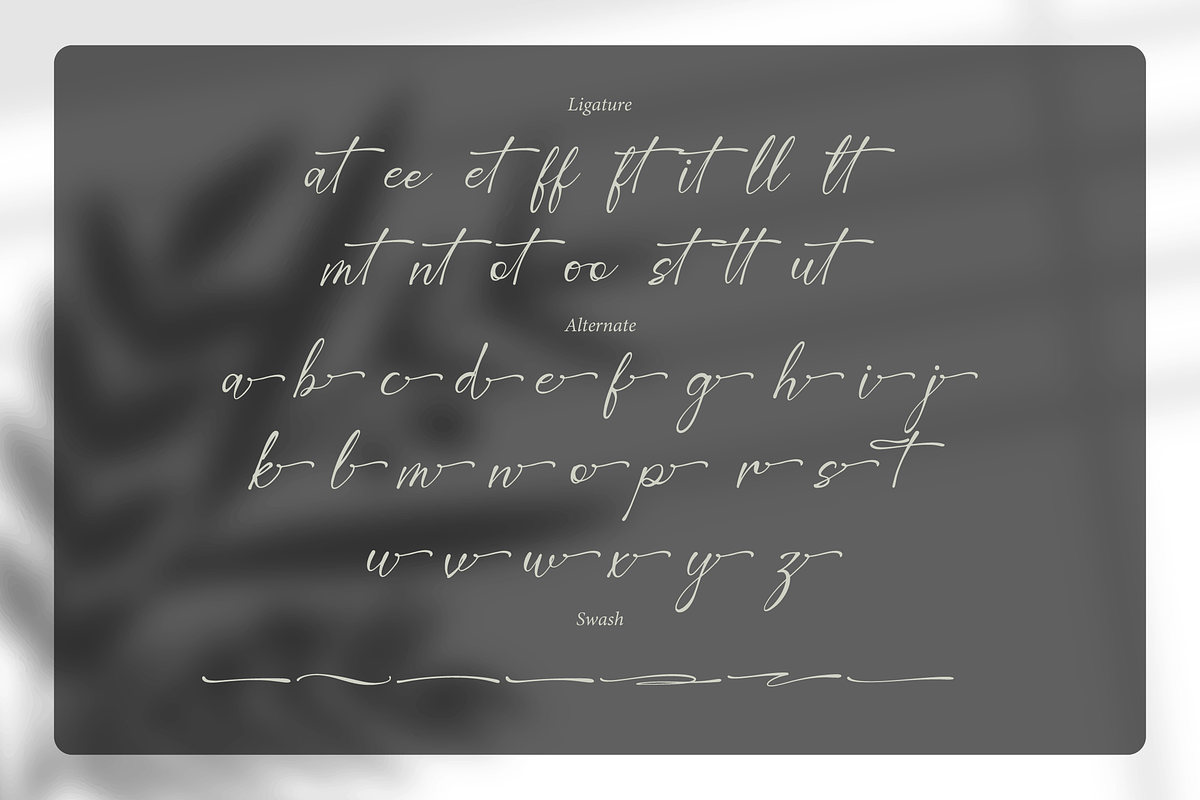 Ligature
at ee et ff ft it ll lt
mt nt ot oo st tt ut
Alternate
a b c d e f g h i j
k l m n o p r s t
u v w x y z
Swash